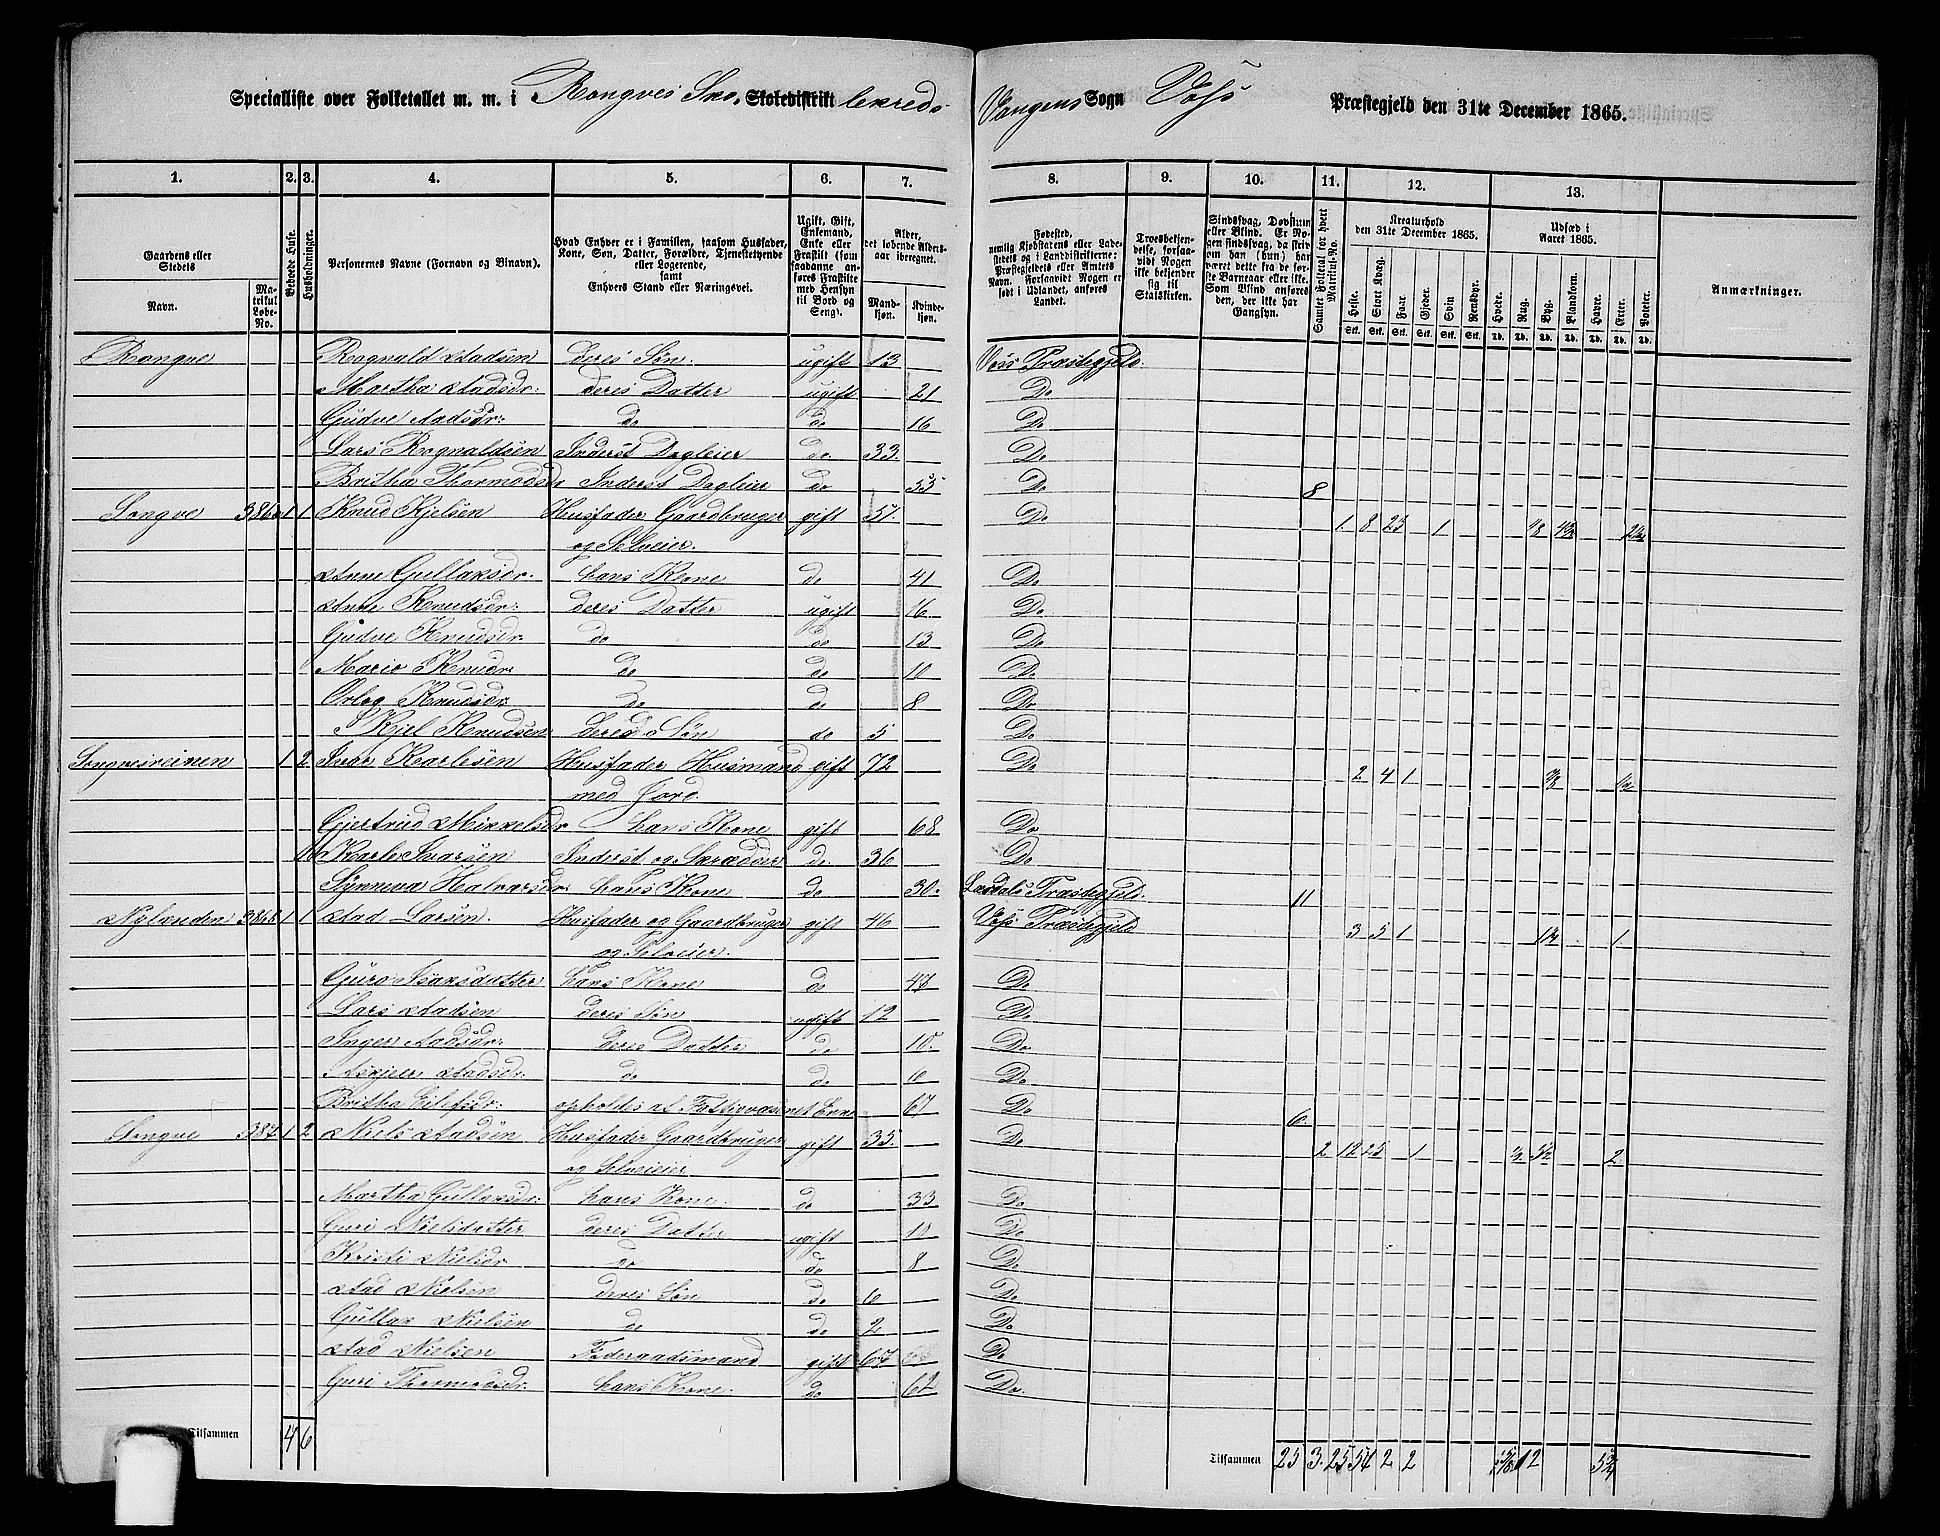 Specialliste over Folketallet m. m. i Rongves Sko. Skoledistrikt lekreds Vangens Sogn Voss Præstegjeld den 31te December 1865.
1. 2. 3. 4. 5. 6. 7. 8. 9. 10. 11. 12. 13.
Gaardens eller Stedets
Navn. Matrikul Løbe-No.
Beboede Huse.
Husholdninger.
Personernes Navne (Fornavn og Binavn).
Hvad Enhver er i Familien, saasom Husfader, Kone, Søn, Datter, Forældre, Tjenestetyende eller Logerende, samt Enhvers Stand eller Næringsvei.
Ugift, Gift, Enkemand, Enke eller Fraskilt (som saadanne anføres Fraskilte med Hensyn til Bord og Seng).
Alder, det løbende Aldersaar iberegnet.
Mandkjøn. Kvindekjøn.
Fødested, nemlig Kjøbstadens eller Ladestedets og i Landdistrikterne: Præstegjeldets eller Amtets Navn. Forsaavidt Nogen er født i Udlandet, anføres Landet.
Troesbekjendelse, forsaavidt Nogen ikke bekjender sig til Statskirken.
Sindssvag, Døvstum eller Blind. Er Nogen sindssvag, da skrives om han (hun) har været dette fra de første Barneaar eller ikke. Som Blind anføres den, der ikke har Gangsyn.
Samlet Folketal for hvert Matrikul-No.
Kreaturhold den 31te December 1865.
Heste. Stort Kvæg. Faar. Gjeder. Svin Rensdyr.
Udsæd i Aaret 1865.
Hvede. Rug. Byg. Blandkorn. Havre. Erter. Poteter.
Anmærkninger.
Rongve Rognald Aadsen deres Søn. ugift 13 Voss Præstegjeld.
Martha Aadsdr. deres Datter ugift 21 Do
Gudve Aadsdr. do do 16 Do
Lars Rognaldsen Inderst Dagleier do 33 Do
Britha Thormodsdr Inderst Dagleier do 55 Do 8
Songve 386a 1 1 Knud Kjelsen Husfader Gaardbruger gift 51 Do 1 8 23 1
og Selveier.
Anne Gullaksdr. hans Kone do 41 Do
Anne Knudsdr. deres Datter ugift 16 Do
Gudve Knudsdr. do do 13 Do
Mario Knudr. do do 10 Do
Orlog Knudsdr do do 8 Do
Kjel Knudsen deres Søn do 5 Do
Songvesreinen 1 2 Ivar Karlesen Husfader Husmand gift 72 Do 2 4 1
med Jord.
Gjertrud Mikkelsdr hans Kone gift 68 Do
Karle Ivarsen Inderst og Skrædder do. 36 Do
Synneva Halvorsdr hans Kone do 30 Lærdals Præstegjeld. 11
Nylænden 386b 1 1 Aad Larsen. Husfader og Gaardbruger gift 46 Voss Præstegjeld 3 5 1 1
og Selveier.
Guro Isaksdatter hans Kone do 48 Do
Lars Aadsen deres Søn ugift 12 Do
Inger Aadsdr. deres Datter do 10 Do
Askjer Aadsdr. do do Do
Britha Eilefsdr. opholdes af Fattigvæsenet Enke 67 Do 6
Songve 387 1 2 Niels Aadsen Husfader Gaardbruger gift 35 Do 2 12 25 1 2
og Selveier
Martha Gullaksdr. hans Kone. do 33 Do
Guri Nielsdatter deres Datter ugift 10 Do
Kristi Nielsdr do do 8 Do
Aad Nielsen deres Søn do 6 Do
Gullak Nielsen do do 2 Do
Aad Nielsen Føderaadsmand gift 67 Do
Guri Thormodsdr. hans Kone. do 62 Do
Tilsammen 4 6
Tilsammen 25 3 25 54 2 2 12